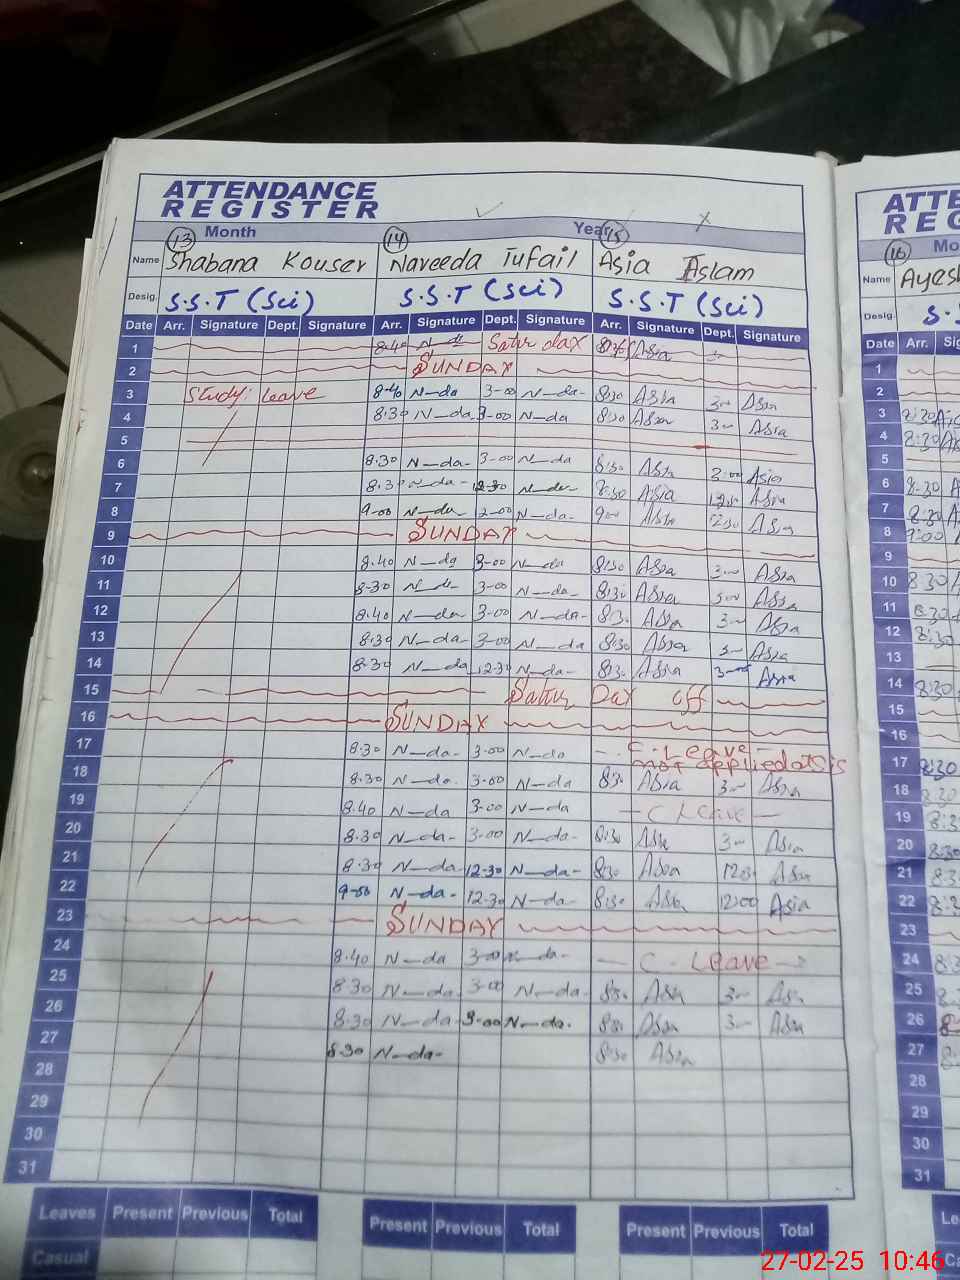 ATTENDANCE
REGISTER
ATTE
REG
Month Year
13 14 15 16
Name Shabana Kouser Naveeda Tufail Asia Aslam
Name Ayes
Desig. S.S.T (Sci) S.S.T (Sci) S.S.T (Sci)
Desig. S.
Date Arr. Signature Dept. Signature Arr. Signature Dept. Signature Arr. Signature Dept. Signature
Date Arr.
1 8.40 Satur day Asia
2 SUNDAY
3 Study Leave 8-40 N-da 3-00 N-da- 8:30 Asia 3- Asia
4 8:30 N-da 3-00 N-da 8:30 Asia 3- Asia
5
6 8.30 N-da- 3-00 N-da 8:30 Asia 3:00 Asia
7 8.30 N-da- 12-30 N-da 8:30 Asia 12:30 Asia
8 9-00 N-da- N-da- 900 Asia 12:30 Asia
9 SUNDAY
10 8.40 N-da 3-00 N-da 8:30 Asia 3- Asia
11 8-30 N-da 3-00 N-da- 8:30 Asia 3:00 Asia
12 8.40 N-da- 3-00 N-da- 8:30 Asia 3- Asia
13 8.30 N-da- 3-00 N-da 8:30 Asia 3- Asia
14 8-30 N-da 12-30 N-da- 8:30 Asia 3- Asia
15 Satur Day off
16 SUNDAY
17 8.30 N-da- 3.00 N-da - C. Leave -
not applied
18 8.30 N-da. 3-00 N-da 8:30 Asia 3- Asia
19 8.40 N-da 3-00 N-da - C Leave -
20 8.30 N-da- 3-00 N-da- 8:30 Asia 3- Asia
21 8.30 N-da- 12-30 N-da- 8:30 Asia 12:30 Asia
22 9-00 N-da- 12-30 N-da- 8:30 Asia 12:00 Asia
23 SUNDAY
24 8.40 N-da 3-00 N-da- - C. Leave -
25 8.30 N-da 3-00 N-da- 8:30 Asia 3- Asia
26 8.30 N-da- 3-00 N-da. 8:30 Asia 3- Asia
27 8.30 N-da- 8:30 Asia
28
29
30
31
Leaves Present Previous Total Present Previous Total Present Previous Total
Casual
27-02-25 10:46